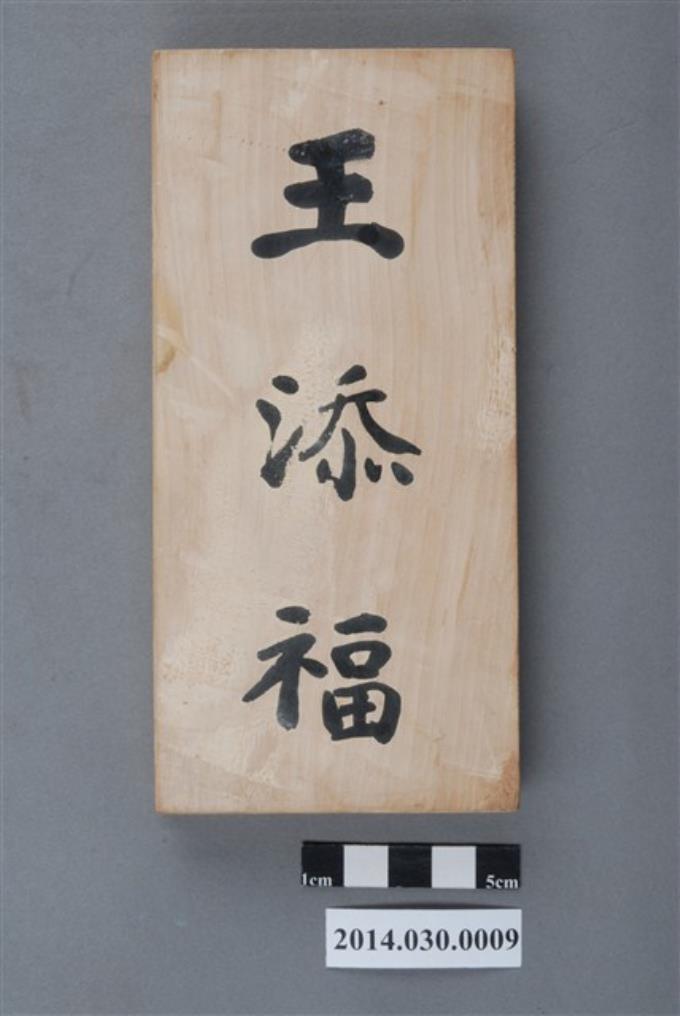 王添福
1cm 5cm
2014.030.0009